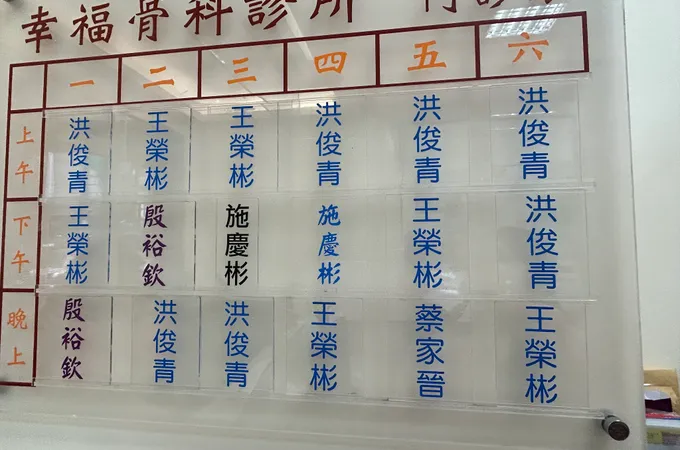 幸福骨科診所 門診
一 二 三 四 五 六
上午 洪俊青 王榮彬 王榮彬 洪俊青 洪俊青 洪俊青
下午 王榮彬 殷裕欽 施慶彬 施慶彬 王榮彬 洪俊青
晚上 殷裕欽 洪俊青 洪俊青 王榮彬 蔡家晉 王榮彬